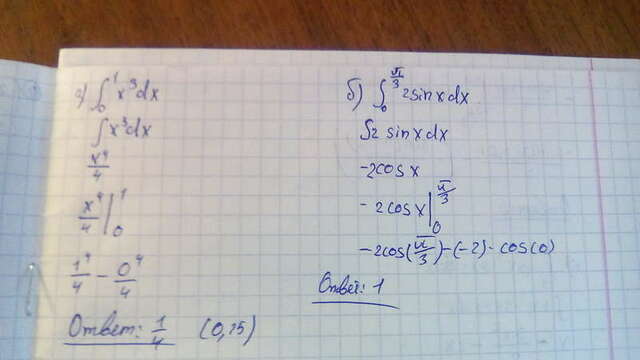 а) ∫₀¹ x³dx
∫x³dx
x⁴/4
x⁴/4 |₀¹
1⁴/4 - 0⁴/4
Ответ: 1/4 (0,25)
б) ∫₀^(π/3) 2sinxdx
∫2 sinxdx
-2cosx
-2cosx |₀^(π/3)
-2cos(π/3)-(-2)·cos(0)
Ответ: 1